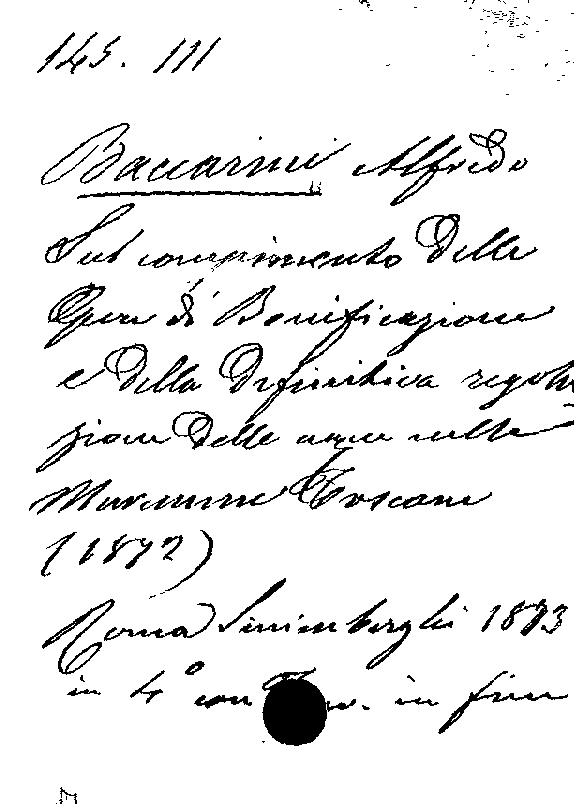 145. III
Baccarini Alfredo
Sul compimento delle
Opere di Bonificazione
e della Definitiva regola
zione delle acque nelle
Maremme Toscane
(1872)
Roma Sinimberghi 1873
in 4° con Tav. in fine